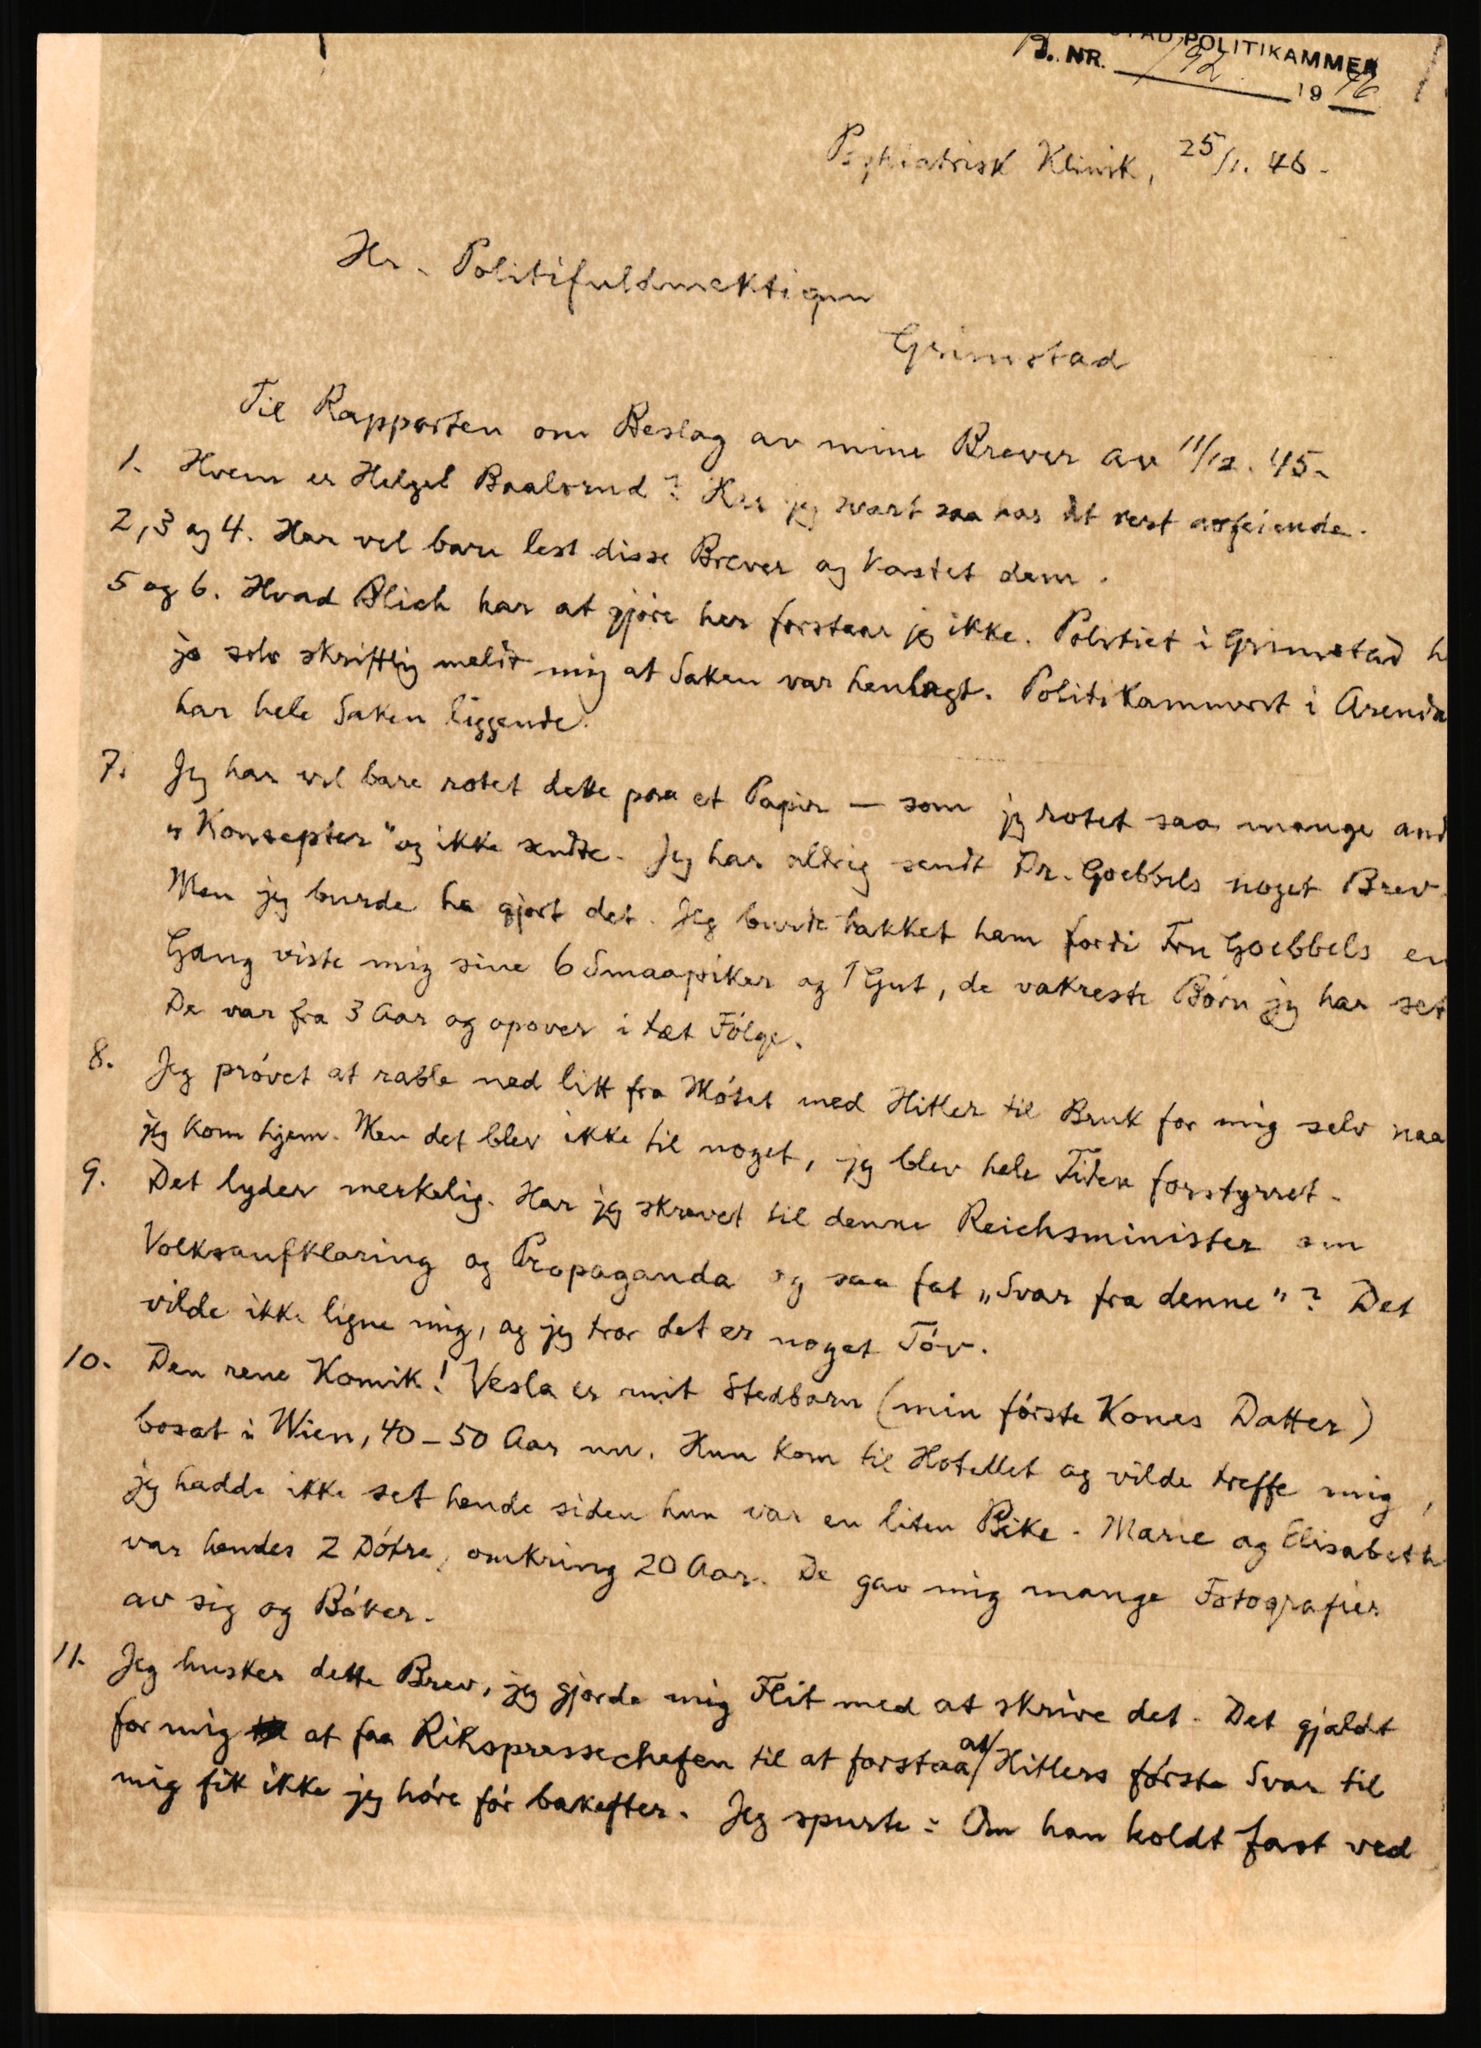 STAD POLITIKAMMER
B. NR. 192 1946
Psykiatrisk Klinik, 25/1. 46.
Hr. Politifuldmektigen
Grimstad
Til Rapporten om Beslag av mine Brever av 11/12. 45.
1. Hvem er Helge Baalsrud? Har jeg svart saa har det vert avfeiende.
2, 3 og 4. Har vel bare lest disse Brever og kastet dem.
5 og 6. Hvad Blich har at gjøre her forstaar jeg ikke. Politiet i Grimstad h
jo selv skriftlig meldt mig at Saken var henlagt. Politikammeret i Arenda
har hele Saken liggende.
7. Jeg har vel bare rotet dette paa et Papir — som jeg rotet saa mange and
"Konsepter" og ikke sendte. Jeg har aldrig sendt Dr. Goebbels noget Brev.
Men jeg burde ha gjort det. Jeg burde takket ham fordi Fru Goebbels en
Gang viste mig sine 6 Smaapiker og 1 Gut, de vakreste Børn jeg har set
De var fra 3 Aar og opover i tæt Følge.
8. Jeg prøvet at rable ned litt fra Møtet med Hitler til Bruk for mig selv naa
jeg kom hjem. Men det blev ikke til noget, jeg blev hele Tiden forstyrret.
9. Det lyder merkelig. Har jeg skrevet til denne Reichsminister om
Volksaufklaring og Propaganda og saa fat „Svar fra denne"? Det
vilde ikke ligne mig, og jeg tror det er noget Tøv.
10. Den rene Komik! Vesla er mit Stedbarn (min første Kones Datter)
bosat i Wien, 40–50 Aar nu. Hun kom til Hotellet og vilde treffe mig,
jeg hadde ikke set hende siden hun var en liten Pike. Marie og Elisabeth
var hendes 2 Døtre, omkring 20 Aar. De gav mig mange Fotografier
av sig og Bøker.
11. Jeg husker dette Brev, jeg gjorde mig Flit med at skrive det. Det gjaldt
for mig at faa Rikspressechefen til at forstaa at Hitlers første Svar til
mig fik ikke jeg høre før bakefter. Jeg spurte: Om han holdt fast ved